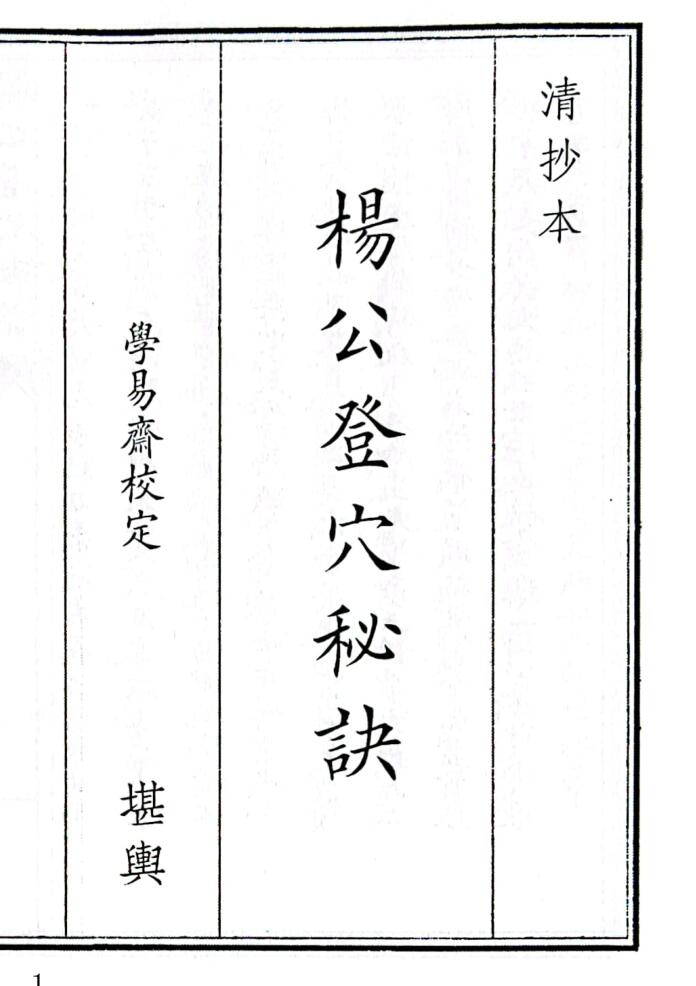 清抄本
楊公登穴秘訣
學易齋校定
堪輿
1